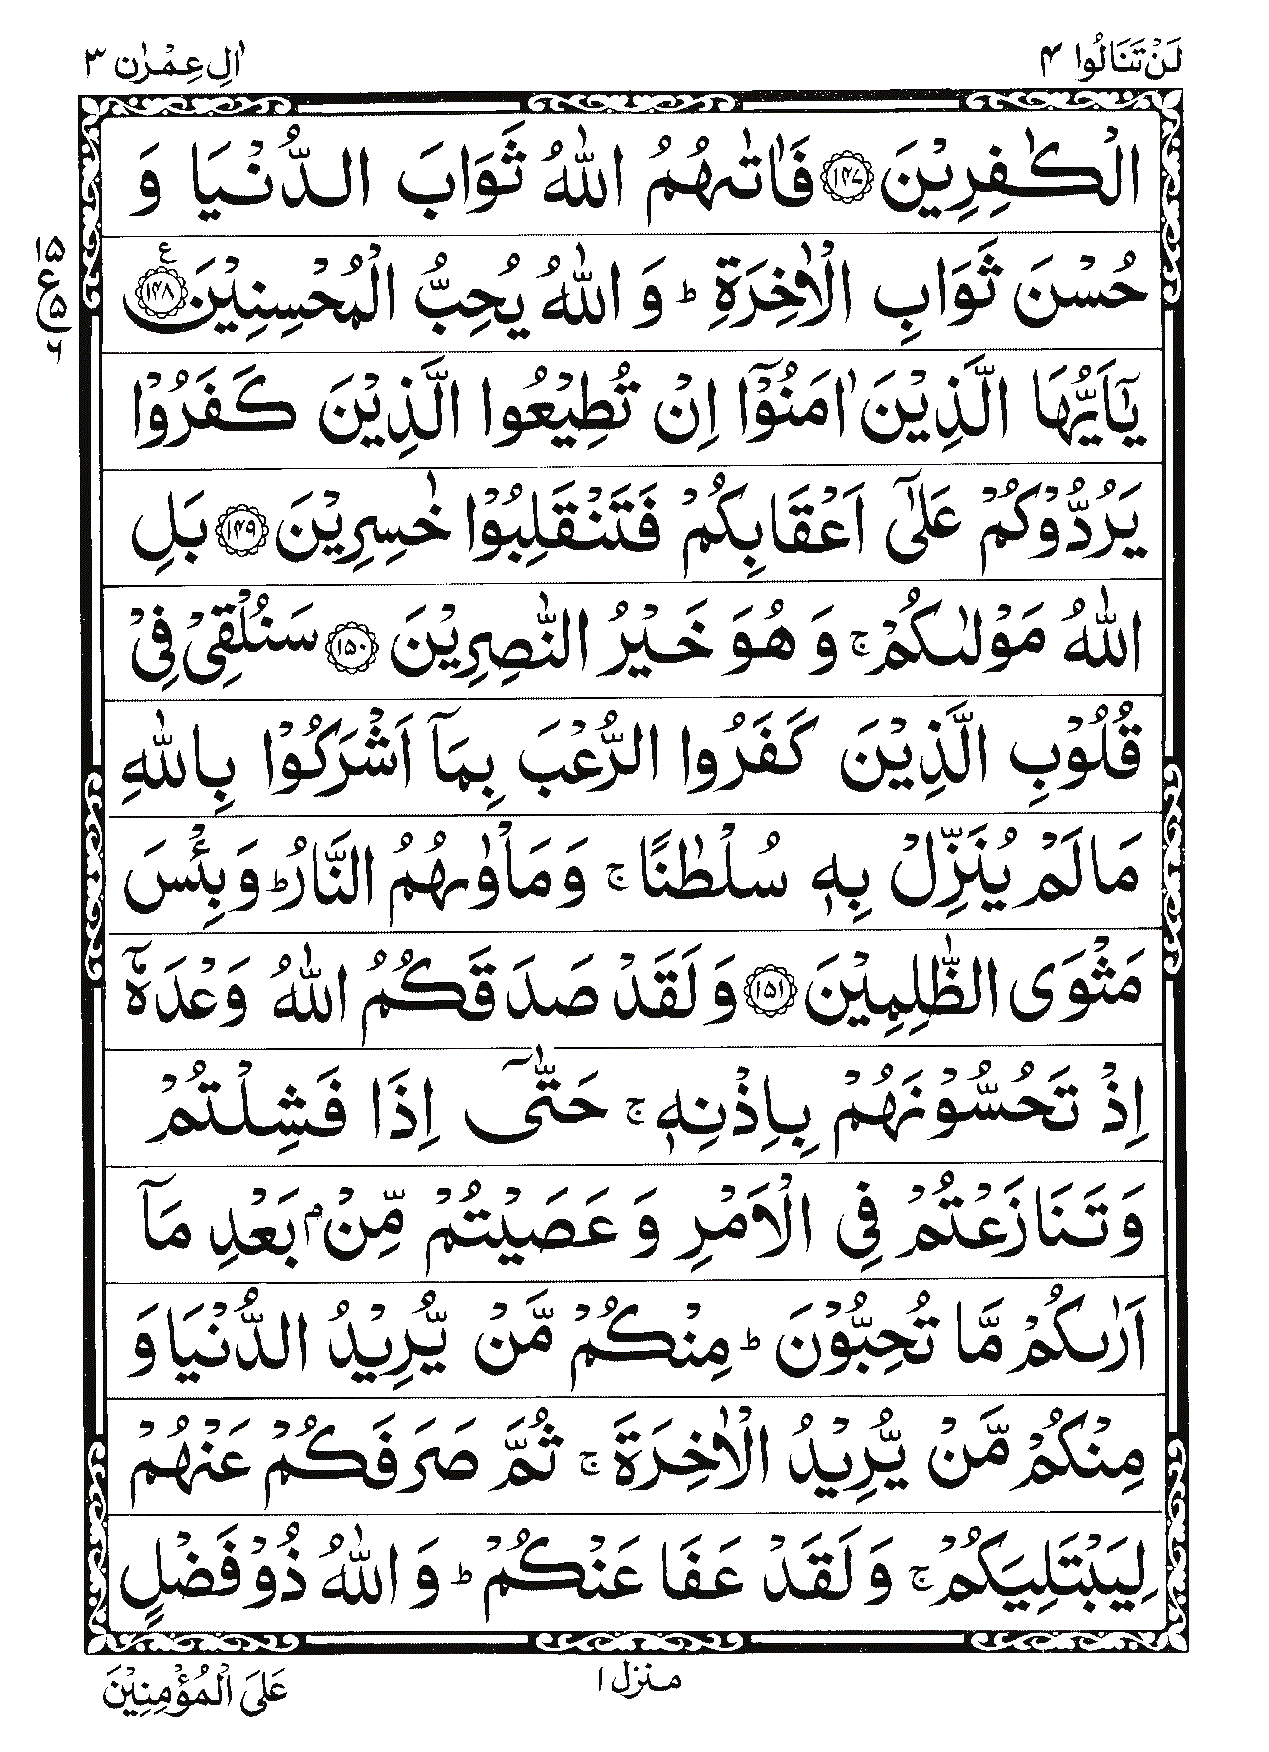 لَنْ تَنَالُوا ۴
اٰلِ عِمْرٰن ۳
الْكٰفِرِيْنَ ۝۱۴۷ فَاٰتٰىهُمُ اللّٰهُ ثَوَابَ الدُّنْيَا وَ
حُسْنَ ثَوَابِ الْاٰخِرَةِ ؕ وَ اللّٰهُ يُحِبُّ الْمُحْسِنِيْنَ ۝۱۴۸ ع
۱۵
ع
۵
۶
يٰۤاَيُّهَا الَّذِيْنَ اٰمَنُوْۤا اِنْ تُطِيْعُوا الَّذِيْنَ كَفَرُوْا
يَرُدُّوْكُمْ عَلٰۤى اَعْقَابِكُمْ فَتَنْقَلِبُوْا خٰسِرِيْنَ ۝۱۴۹ بَلِ
اللّٰهُ مَوْلٰىكُمْ ۚ وَ هُوَ خَيْرُ النّٰصِرِيْنَ ۝۱۵۰ سَنُلْقِيْ فِيْ
قُلُوْبِ الَّذِيْنَ كَفَرُوا الرُّعْبَ بِمَاۤ اَشْرَكُوْا بِاللّٰهِ
مَا لَمْ يُنَزِّلْ بِهٖ سُلْطٰنًا ۚ وَ مَاْوٰىهُمُ النَّارُ ؕ وَ بِئْسَ
مَثْوَى الظّٰلِمِيْنَ ۝۱۵۱ وَ لَقَدْ صَدَقَكُمُ اللّٰهُ وَعْدَهٗۤ
اِذْ تَحُسُّوْنَهُمْ بِاِذْنِهٖ ۚ حَتّٰۤى اِذَا فَشِلْتُمْ
وَ تَنَازَعْتُمْ فِي الْاَمْرِ وَ عَصَيْتُمْ مِّنْۢ بَعْدِ مَاۤ
اَرٰىكُمْ مَّا تُحِبُّوْنَ ؕ مِنْكُمْ مَّنْ يُّرِيْدُ الدُّنْيَا وَ
مِنْكُمْ مَّنْ يُّرِيْدُ الْاٰخِرَةَ ۚ ثُمَّ صَرَفَكُمْ عَنْهُمْ
لِيَبْتَلِيَكُمْ ۚ وَ لَقَدْ عَفَا عَنْكُمْ ؕ وَ اللّٰهُ ذُوْ فَضْلٍ
منزل ۱
عَلَى الْمُؤْمِنِيْنَ